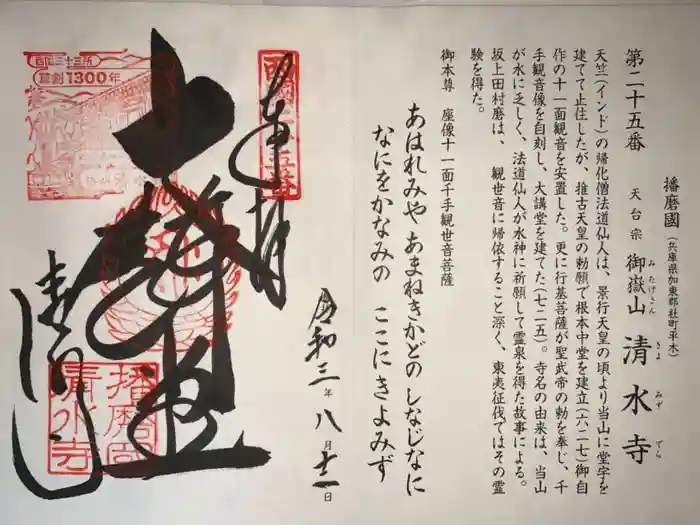 播磨國（兵庫県加東郡社町平木）
第二十五番　天台宗　御嶽山　清水寺
みたけさん　きよ　みず　でら
天竺（インド）の帰化僧法道仙人は、景行天皇の頃より当山に堂宇を
建てて止住したが、推古天皇の勅願で根本中堂を建立（六二七）御自
作の十一面観音を安置した。更に行基菩薩が聖武帝の勅を奉じ、千
手観音像を自刻し、大講堂を建てた（七二五）。寺名の由来は、当山
が水に乏しく、法道仙人が水神に祈願して霊泉を得た故事による。
坂上田村磨は、観世音に帰依すること深く、東夷征伐ではその霊
験を得た。
御本尊　座像十一面千手観世音菩薩
あはれみや　あまねきかどの　しなじなに
なにをかなみの　ここにきよみず
奉拝
令和三年八月十一日
大悲殿
清水寺
西国三十三所
草創1300年
播磨国
清水寺